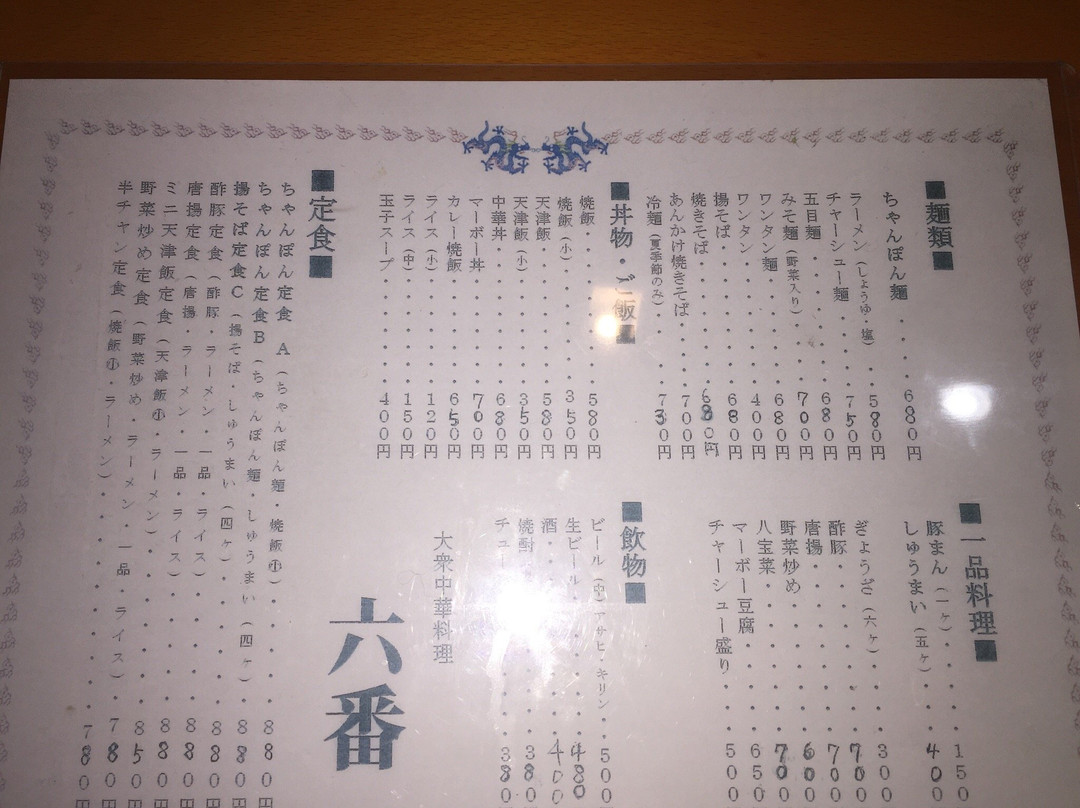 ■麺類■
ちゃんぽん麺・・・・680円
ラーメン(しょうゆ・塩)・・580円
チャーシュー麺・・・・750円
五目麺・・・・・・680円
みそ麺(野菜入り)・・・700円
ワンタン麺・・・・・680円
ワンタン・・・・・・400円
揚そば・・・・・・・680円
焼きそば・・・・・・680円
あんかけ焼きそば・・・700円
冷麺(夏季節のみ)・・・730円
■丼物・ご飯■
焼飯・・・・・・・580円
焼飯(小)・・・・・350円
天津飯・・・・・・580円
天津飯(小)・・・・350円
中華丼・・・・・・680円
マーボー丼・・・・・700円
カレー焼飯・・・・・650円
ライス(小)・・・・120円
ライス(中)・・・・150円
玉子スープ・・・・・400円
■定食■
ちゃんぽん定食 A(ちゃんぽん麺・焼飯小)・・・・880円
ちゃんぽん定食B(ちゃんぽん麺・しゅうまい(四ヶ)・・880円
揚そば定食C(揚そば・しゅうまい(四ヶ)・・・・880円
酢豚定食(酢豚・ラーメン・一品・ライス)・・・・880円
唐揚定食(唐揚 ラーメン・一品・ライス)・・・・880円
ミニ天津飯定食(天津飯小・ラーメン)・・・・850円
野菜炒め定食(野菜炒め・ラーメン・一品・ライス)・・780円
半チャン定食(焼飯小・ラーメン)・・・・・・780円
■一品料理■
豚まん(一ヶ)・・・150
しゅうまい(五ヶ)・・・400
ぎょうざ(六ヶ)・・・300
酢豚・・・・・・700
唐揚・・・・・・700
野菜炒め・・・・・600
八宝菜・・・・・・700
マーボー豆腐・・・・650
チャーシュー盛り・・・500
■飲物■
ビール(中)アサヒ・キリン・・500
生ビール・・・・480
酒・・・・・400
焼酎・・・・380
チュー・・・380
大衆中華料理
六番